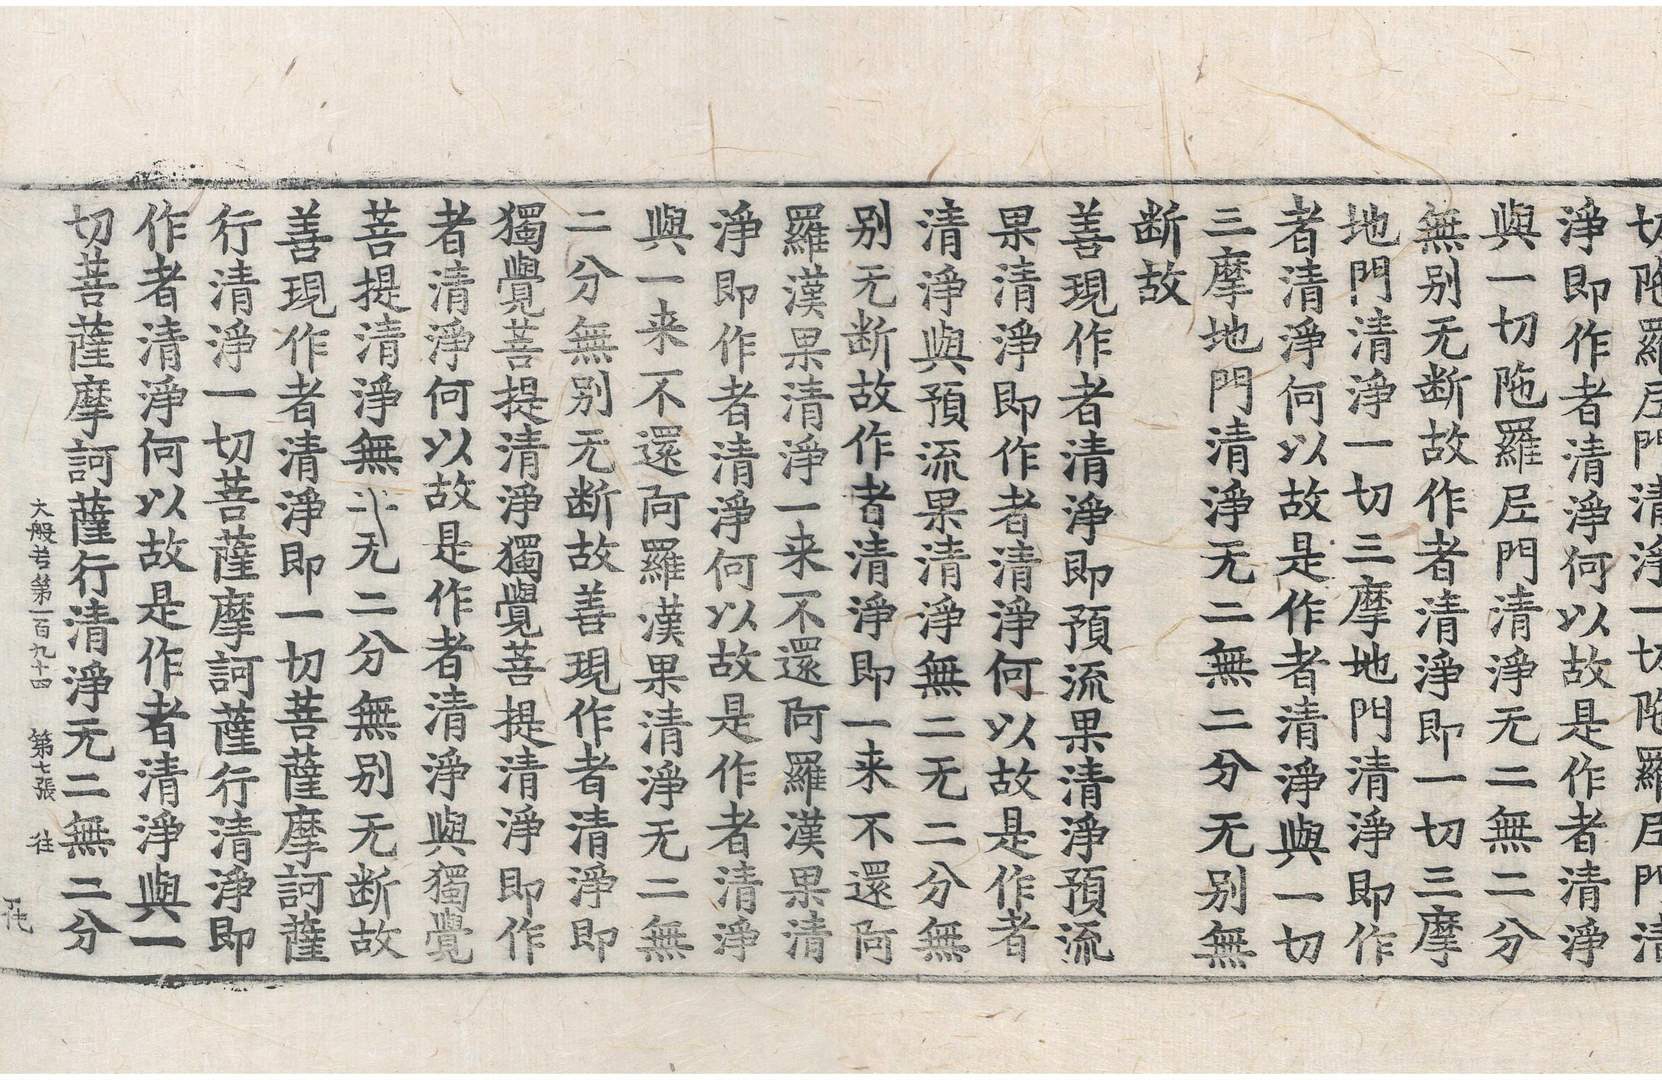 切陁羅尼門清淨一切陁羅尼門清
淨即作者清淨何以故是作者清淨
與一切陁羅尼門清淨无二無二分
無别无断故作者清淨即一切三摩
地門清淨一切三摩地門清淨即作
者清淨何以故是作者清淨與一切
三摩地門清淨无二無二分无别無
断故
善現作者清淨即預流果清淨預流
果清淨即作者清淨何以故是作者
清淨與預流果清淨無二无二分無
别无断故作者清淨即一来不還阿
羅漢果清淨一来不還阿羅漢果清
淨即作者清淨何以故是作者清淨
與一来不還阿羅漢果清淨无二無
二分無别无断故善現作者清淨即
獨覺菩提清淨獨覺菩提清淨即作
者清淨何以故是作者清淨與獨覺
菩提清淨無二无二分無别无断故
善現作者清淨即一切菩薩摩訶薩
行清淨一切菩薩摩訶薩行清淨即
作者清淨何以故是作者清淨與一
切菩薩摩訶薩行清淨无二無二分
大般若第一百九十四 第七張 往